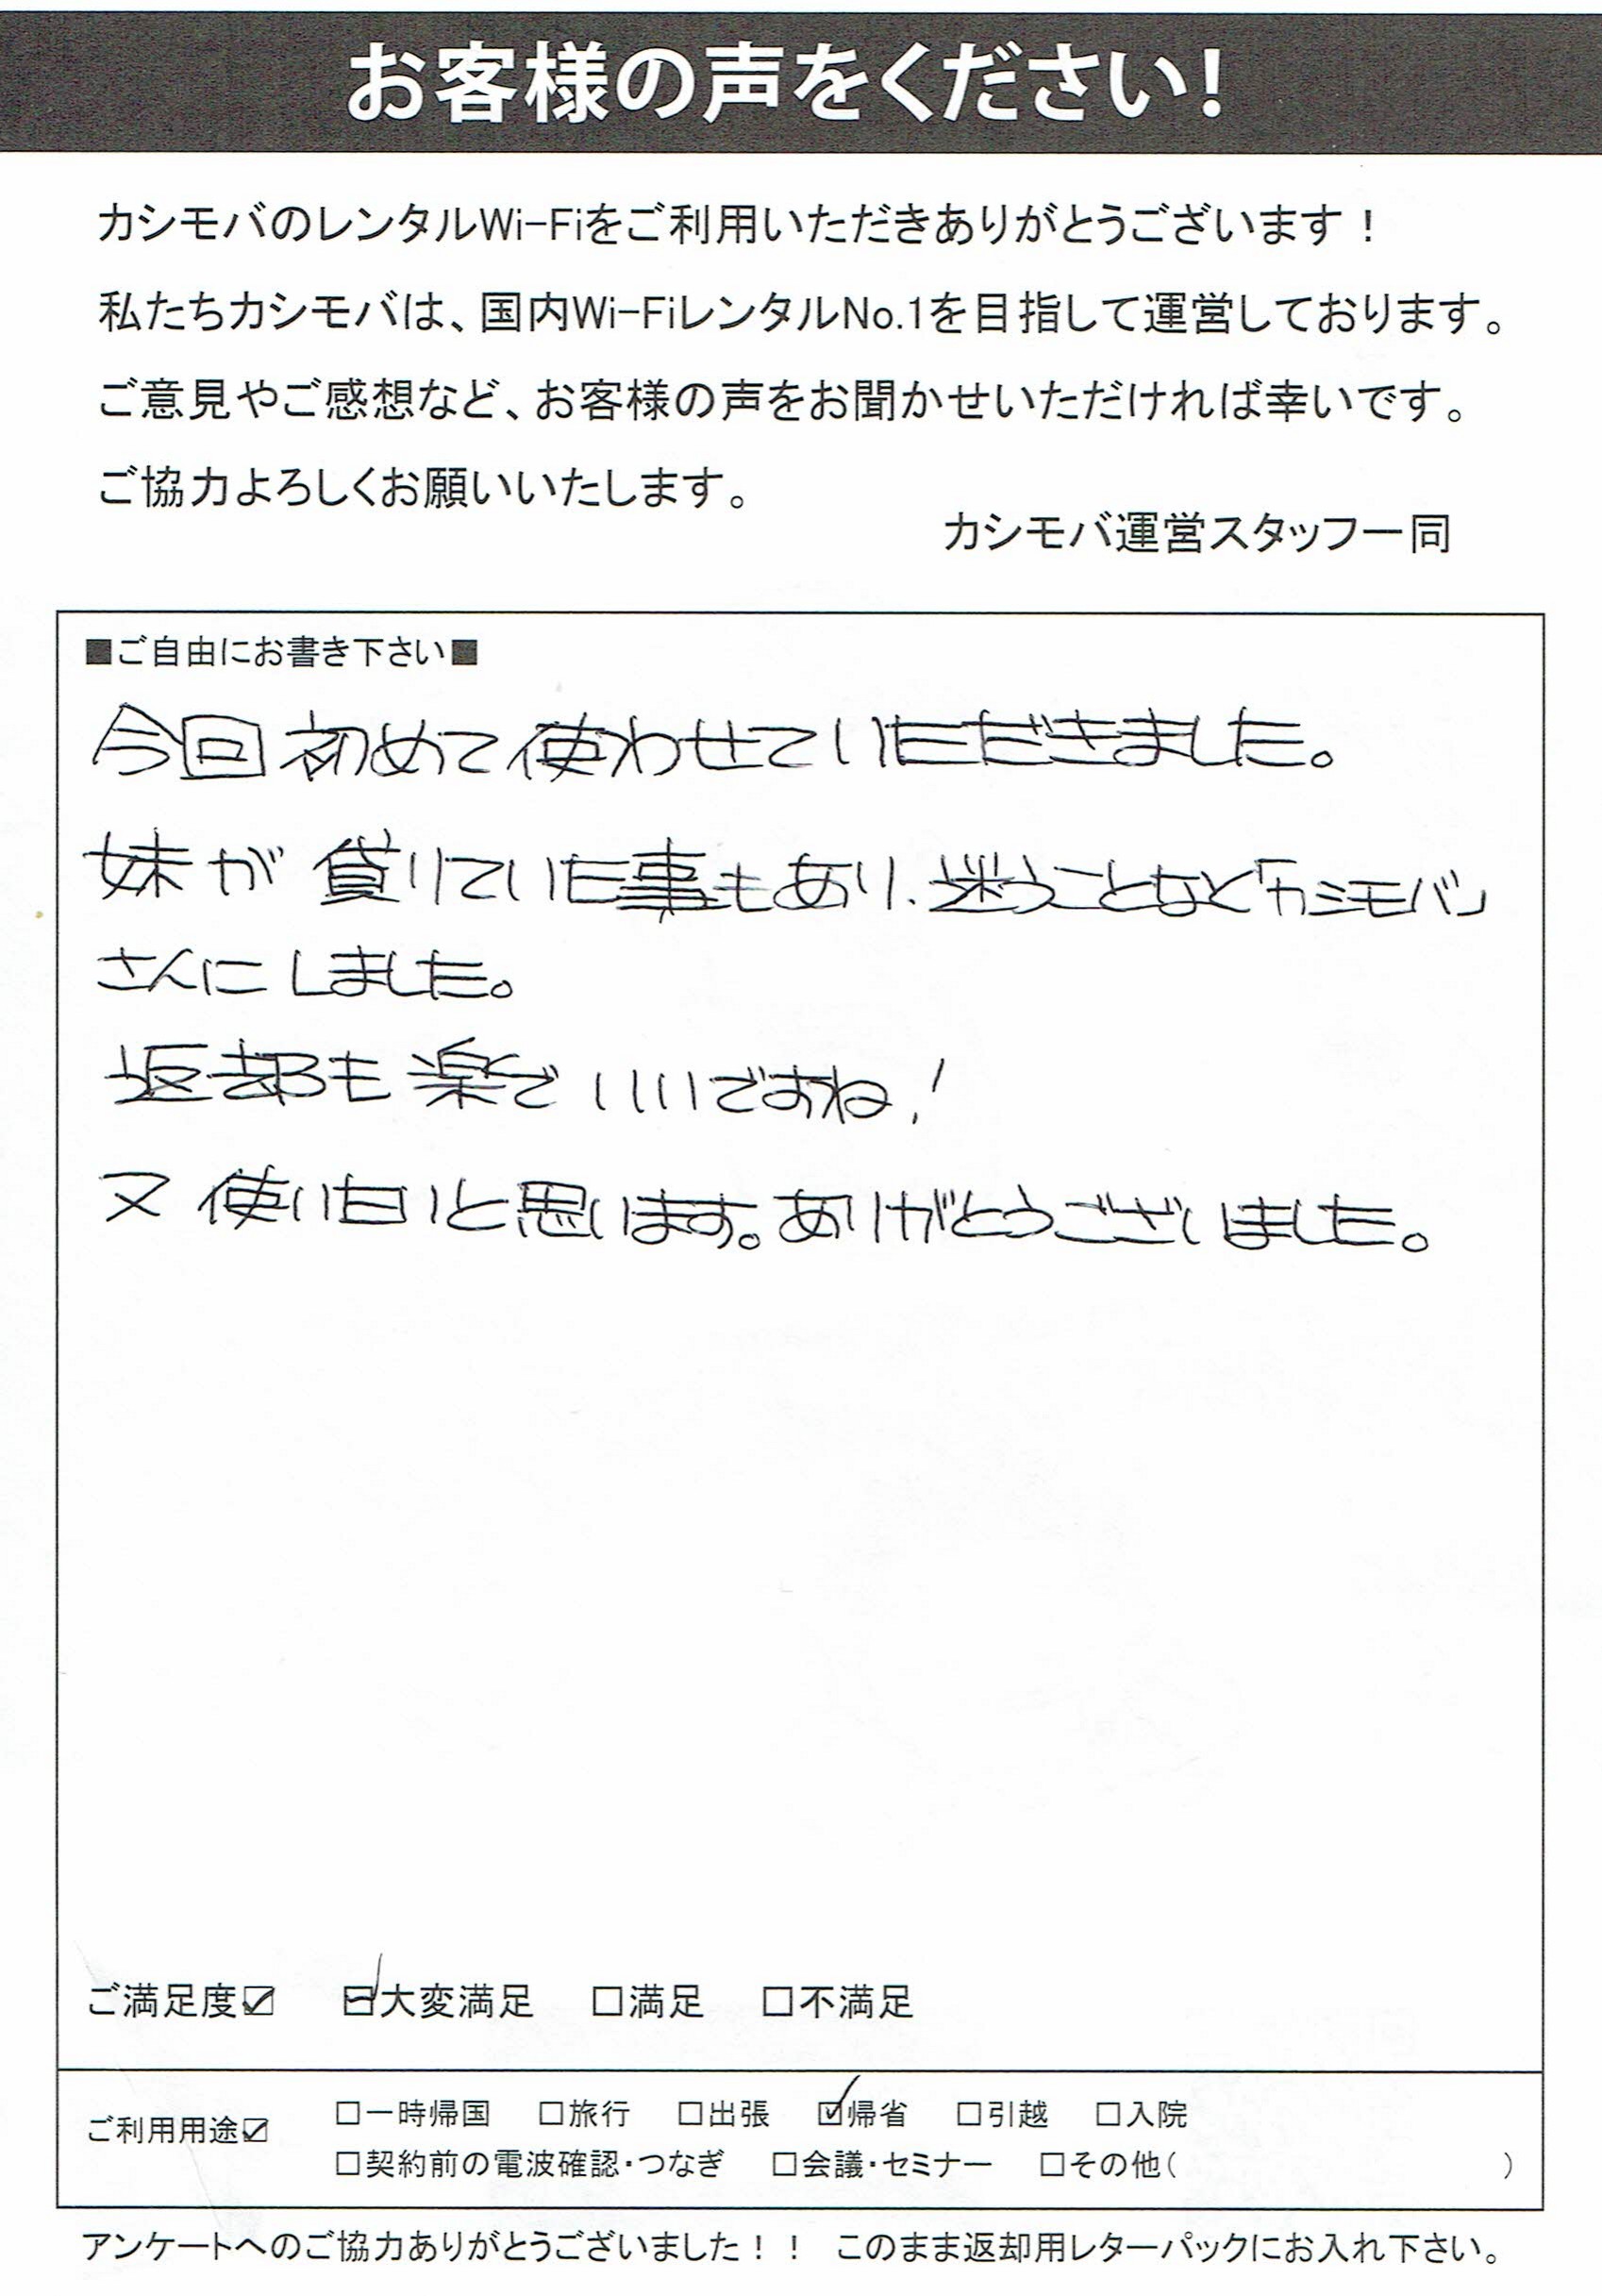 お客様の声をください!
カシモバのレンタルWi-Fiをご利用いただきありがとうございます!
私たちカシモバは、国内Wi-FiレンタルNo.1を目指して運営しております。
ご意見やご感想など、お客様の声をお聞かせいただければ幸いです。
ご協力よろしくお願いいたします。
カシモバ運営スタッフ一同
■ご自由にお書き下さい■
今回初めて使わせていただきました。
妹が貸りていた事もあり、迷うことなど「カシモバ」
さんにしました。
返却も楽でいいですね!
又使い白いと思います。ありがとうございました。
ご満足度☑ ☑大変満足 □満足 □不満足
ご利用用途☑ □一時帰国 □旅行 □出張 ☑帰省 □引越 □入院
□契約前の電波確認・つなぎ □会議・セミナー □その他( )
アンケートへのご協力ありがとうございました!! このまま返却用レターパックにお入れ下さい。